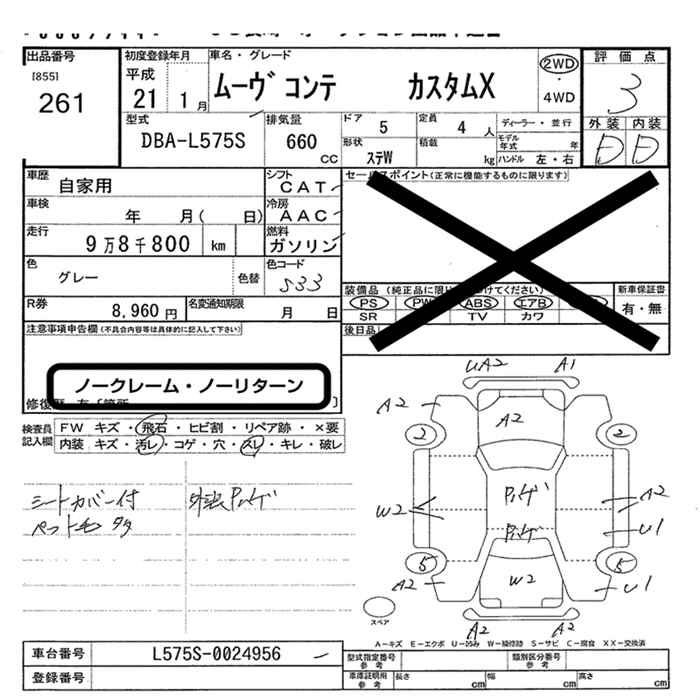 出品番号
[855]
261
初度登録年月
平成
21 1月
車名・グレード
ムーヴ コンテ カスタムX
2WD
・
4WD
評価点
3
外装 内装
D D
型式
DBA-L575S
排気量
660
CC
ドア
5
定員
4 人
形状
ステW
積載
kg
ディーラー・並行
モデル年式 年
ハンドル 左・右
車歴
自家用
シフト
CAT
車検
年 月( 日)
冷房
AAC
走行
9万8千800 km
燃料
ガソリン
色
グレー
色替
色コード
S33
R券
8,960 円
名変通知期限
月 日
セールスポイント(正常に機能するものに限ります)
装備品
PS PW ABS エアB
SR TV カワ
後日品
新車保証書
有・無
注意事項申告欄(不具合内容等は具体的に記入して下さい)
ノークレーム・ノーリターン
検査員記入欄
FW キズ・飛石・ヒビ割・リペア跡・×要
内装 キズ・汚レ・コゲ・穴・スレ・キレ・破レ
シートカバー付 外装アルゲ
ペット毛 多
UA2 A1
A2
A2
2 2
W2
A2
U1
5 5
A2
W2
U1
A2 A2
スペア
A-キズ E-エクボ U-凹み W-補修跡 S-サビ C-腐食 XX-交換済
車台番号
L575S-0024956
登録番号
型式指定番号 参考
類別区分番号 参考
車庫証明用 参考
長さ cm
幅 cm
高さ cm